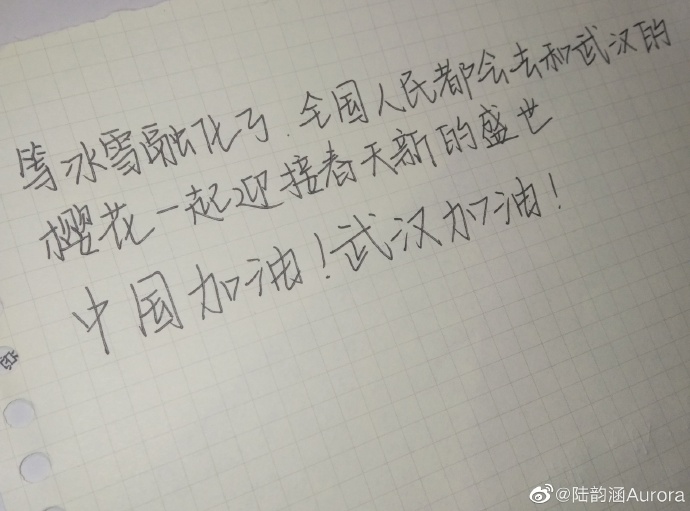 等冰雪融化了.全国人民都会去和武汉的
樱花一起迎接春天新的盛世
中国加油！武汉加油！
@陆韵涵Aurora